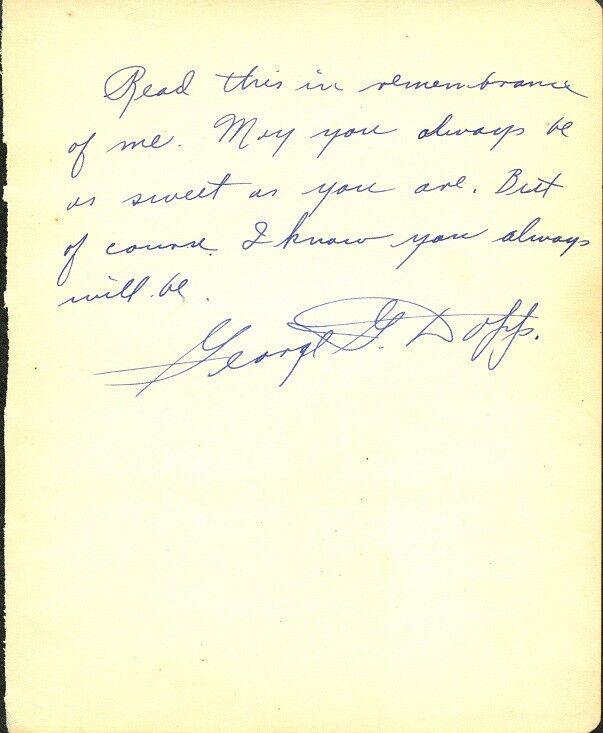 Read this in remembrance
of me. May you always be
as sweet as you are. But
of course I know you always
will be.
George G. Dopps.